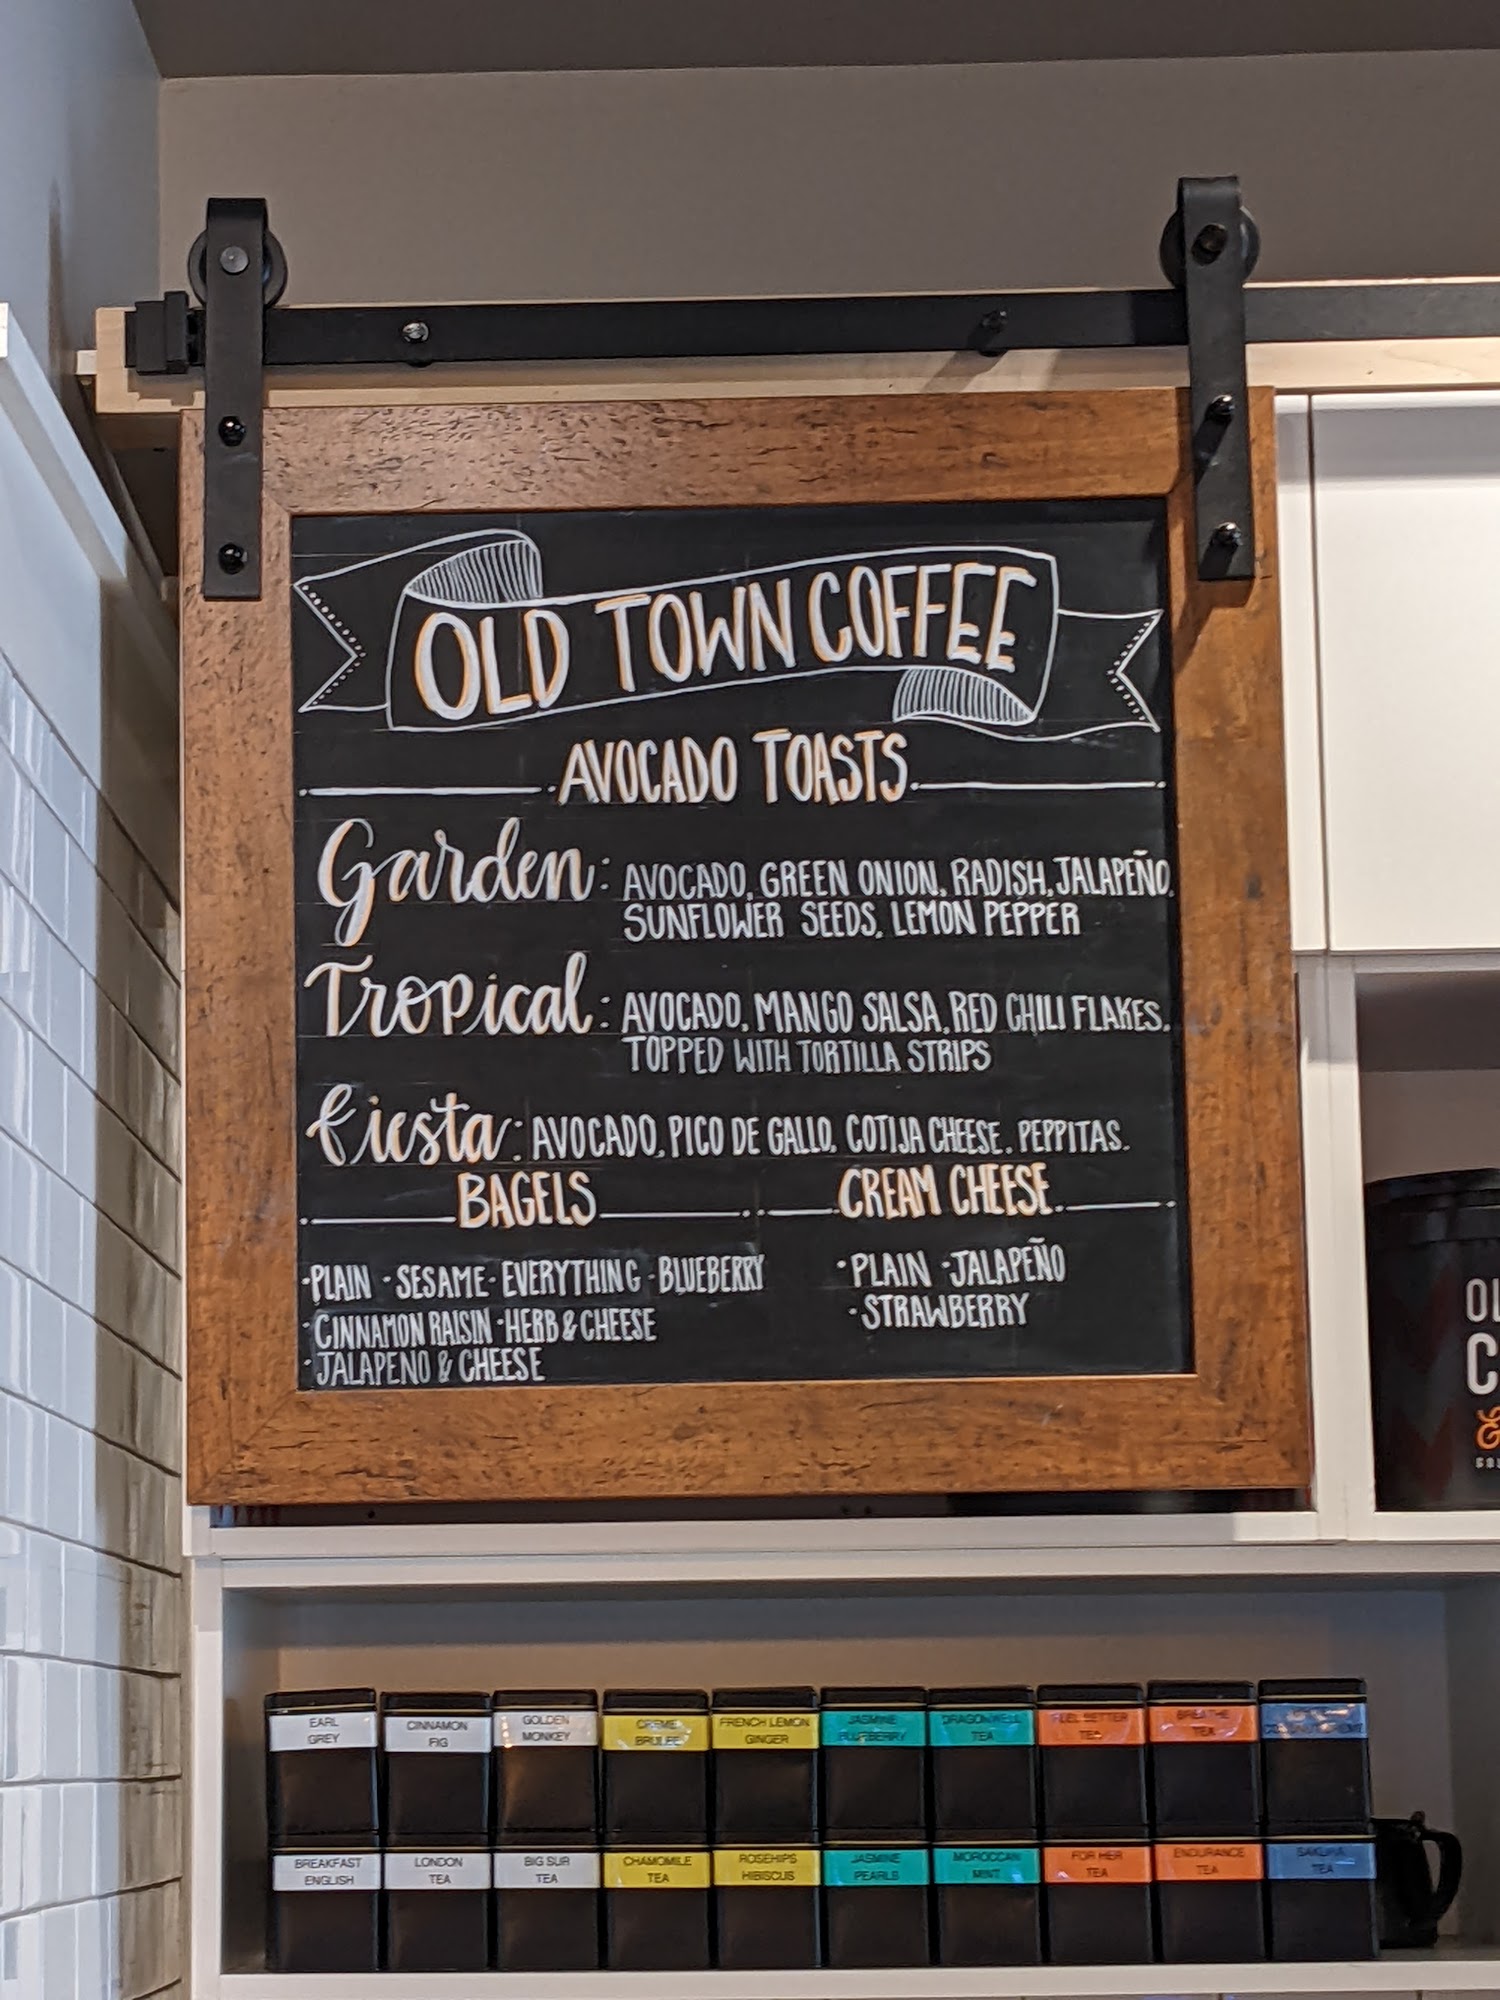 OLD TOWN COFFEE
AVOCADO TOASTS
Garden: AVOCADO, GREEN ONION, RADISH, JALAPEÑO,
SUNFLOWER SEEDS, LEMON PEPPER
Tropical: AVOCADO, MANGO SALSA, RED CHILI FLAKES,
TOPPED WITH TORTILLA STRIPS
Fiesta: AVOCADO, PICO DE GALLO, COTIJA CHEESE, PEPPITAS.
BAGELS
·PLAIN ·SESAME· EVERYTHING ·BLUEBERRY
·CINNAMON RAISIN ·HERB & CHEESE
·JALAPENO & CHEESE
CREAM CHEESE
·PLAIN ·JALAPEÑO
·STRAWBERRY
EARL
GREY
CINNAMON
FIG
GOLDEN
MONKEY
CREME
BRULEE
FRENCH LEMON
GINGER
JASMINE
BLUEBERRY
DRAGONWELL
TEA
FEEL BETTER
TEA
BREATHE
TEA
BREAKFAST
ENGLISH
LONDON
TEA
BIG SUR
TEA
CHAMOMILE
TEA
ROSEHIPS
HIBISCUS
JASMINE
PEARLS
MOROCCAN
MINT
FOR HER
TEA
ENDURANCE
TEA
SAKURA
TEA